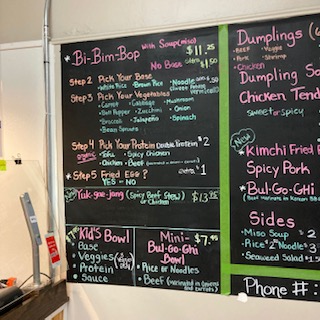 Bi-Bim-Bop with Soup(miso) $11.25
No Base extra $1.50
Step 2 Pick Your Base
White Rice Brown Rice Noodle
Step 3 Pick Your Vegetables
Carrot Cabbage Mushroom
Bell Pepper Zucchini Onion
Broccoli Jalapeño Spinach
Bean Sprouts
Step 4 Pick Your Protein Double Protein $2
organic Tofu Spicy Chicken
Chicken Beef
Step 5 Fried Egg? extra $1
YES or NO
New
Yuk-gae-jang (Spicy Beef Stew) $13.95
or Chicken
Kid's Bowl
Base
Veggies
Protein
Sauce
Mini- $7.95
Bul-Go-Ghi
Bowl
Rice or Noodles
Beef (marinated in onions
and carrots)
Dumplings
Beef Veggie
Pork Shrimp
Chicken
Dumpling
Chicken Tend
sweet or spicy
New
Kimchi Fried
Spicy Pork
Bul-Go-Ghi
Sides
Miso Soup $2
Rice $2 Noodle $3
Seaweed Salad $
Phone #: